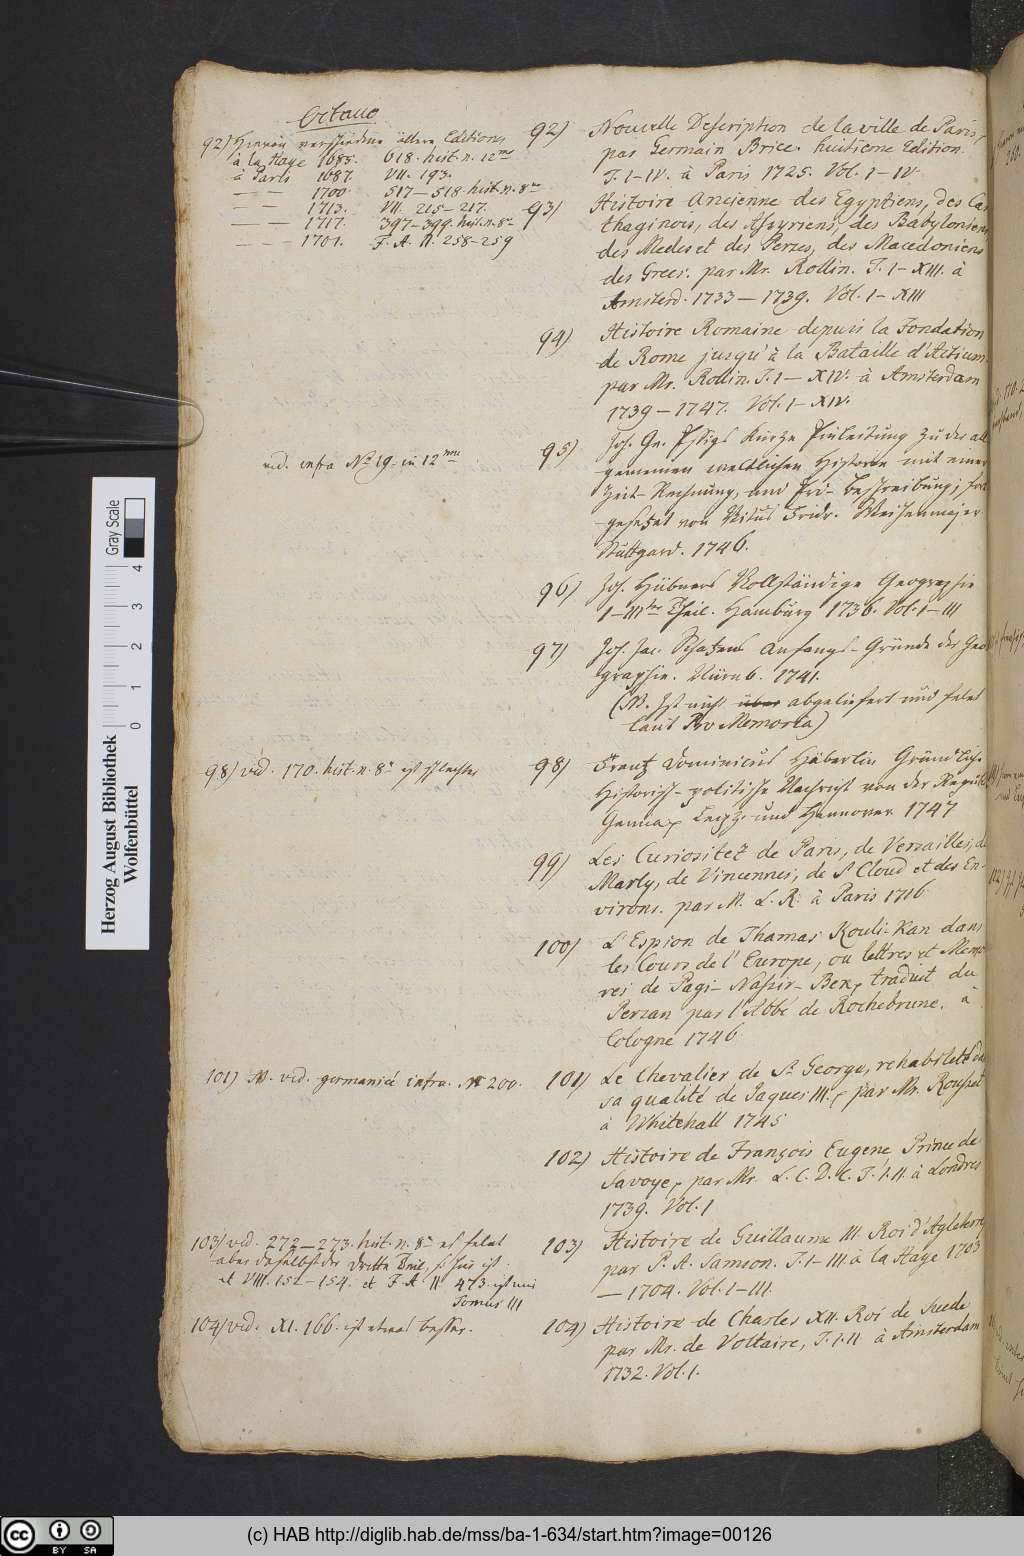 Octavo
92) Hievon verschiedene ältere Editiones
à la Haye 1685. 618. hist. n. 12mo
à Paris 1687. VII. 193.
— — 1700. 517—518. hist. n. 8vo
— — 1713. VII. 215—217.
— — 1717. 397—399. hist. n. 8vo
— — 1701. F. A. II. 258-259
92) Nouvelle Description de la ville de Paris,
par Germain Brice. huitieme Edition.
T. I-IV. à Paris 1725. Vol. I-IV.
93) Histoire Ancienne des Egyptiens, des Car
thaginois, des Assyriens, des Babyloniens,
des Medes et des Perses, des Macedoniens
des Grecs. par Mr. Rollin. T. I-XIII. à
Amsterd. 1733—1739. Vol. I-XIII
94) Histoire Romaine depuis la Fondation
de Rome jusqu'à la Bataille d'Actium.
par Mr. Rollin. T. I—XIV. à Amsterdam
1739—1747. Vol. I-XIV.
vid. infra No 19. in 12mo
95) Joh. Ge. Essigs Kurze Einleitung zu der all
gemeinen weltlichen Historie mit einer
Zeit-Rechnung, und Erd-Beschreibung; fort
gesetzt von Vitus Fridr. Weihenmajer
Stuttgard. 1746.
96) Joh. Hübners Vollständige Geographie
I-IIIter Theil. Hamburg 1736. Vol. I-III
97) Joh. Jac. Schatzens Anfangs-Gründe der Geo
graphie. Nürnb. 1741.
(NB. Ist nicht über abgeliefert und fehlet
laut Pro Memoria)
98) vid. 170. hist. n. 8vo ist schlechter
98) Frantz Dominicus Häberlin Gründliche
Historisch-politische Nachricht von der Republ.
Genua, Leipz. und Hannover 1747
99) Les Curiositez de Paris, de Versailles, de
Marly, de Vincennes, de St Cloud et des En-
virons. par M. L. R. à Paris 1716
100) L'Espion de Thamas Kouli-Kan dans
les Cours de l'Europe, ou lettres et Memoi
res de Pagi-Nassir-Bek, traduit du
Persan par l'Abbé de Rochebrune. à
Cologne 1746
101) NB. vid. germanicè infra. N 200.
101) Le Chevalier de St George, rehabileté dans
sa qualité de Jaques III. par Mr. Rousset
à Whitehall 1745
102) Histoire de François Eugene Prince de
Savoye, par Mr. L. C. D. C. T. I. II. à Londres
1739. Vol. I
103) vid. 272—273. hist. n. 8vo es fehlet
aber daselbst der dritte Theil, so hier ist.
et VIII. 152—154. et F. A. II 473. ist nur
Tomus III
103) Histoire de Guillaume III. Roi d'Agleterre,
par P. A. Samson. T. I-III. à la Haye 1703
—1704. Vol. I-III.
104) vid. XI. 166. ist etwas besser.
104) Histoire de Charles XII. Roi de Suede
par Mr. de Voltaire, T. I. II. à Amsterdam
1732. Vol. I.
Gray Scale
0 1 2 3 4
Herzog August Bibliothek
Wolfenbüttel
cc BY SA
(c) HAB http://diglib.hab.de/mss/ba-1-634/start.htm?image=00126